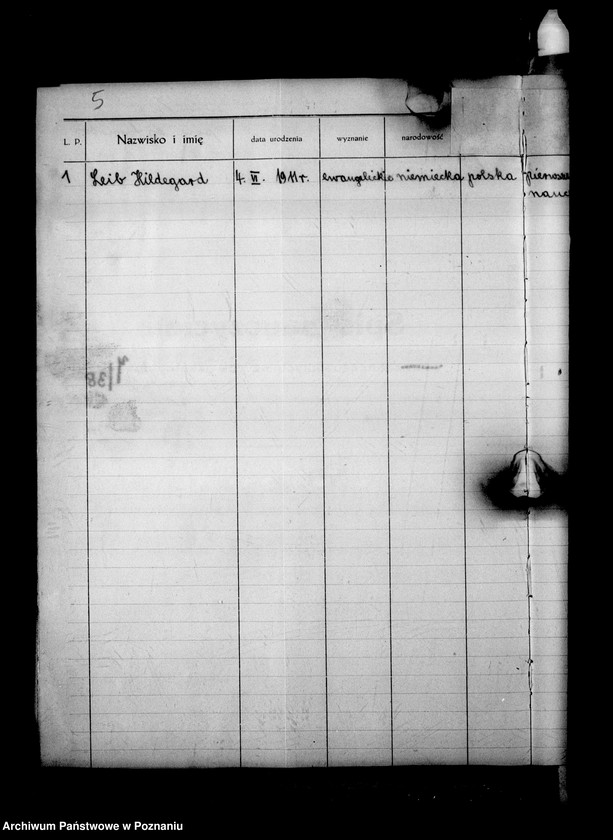 5
L. P. Nazwisko i imię data urodzenia wyznanie narodowość
1 Leib Hildegard 4. VI. 1911 r. ewangelickie niemiecka polska
Archiwum Państwowe w Poznaniu